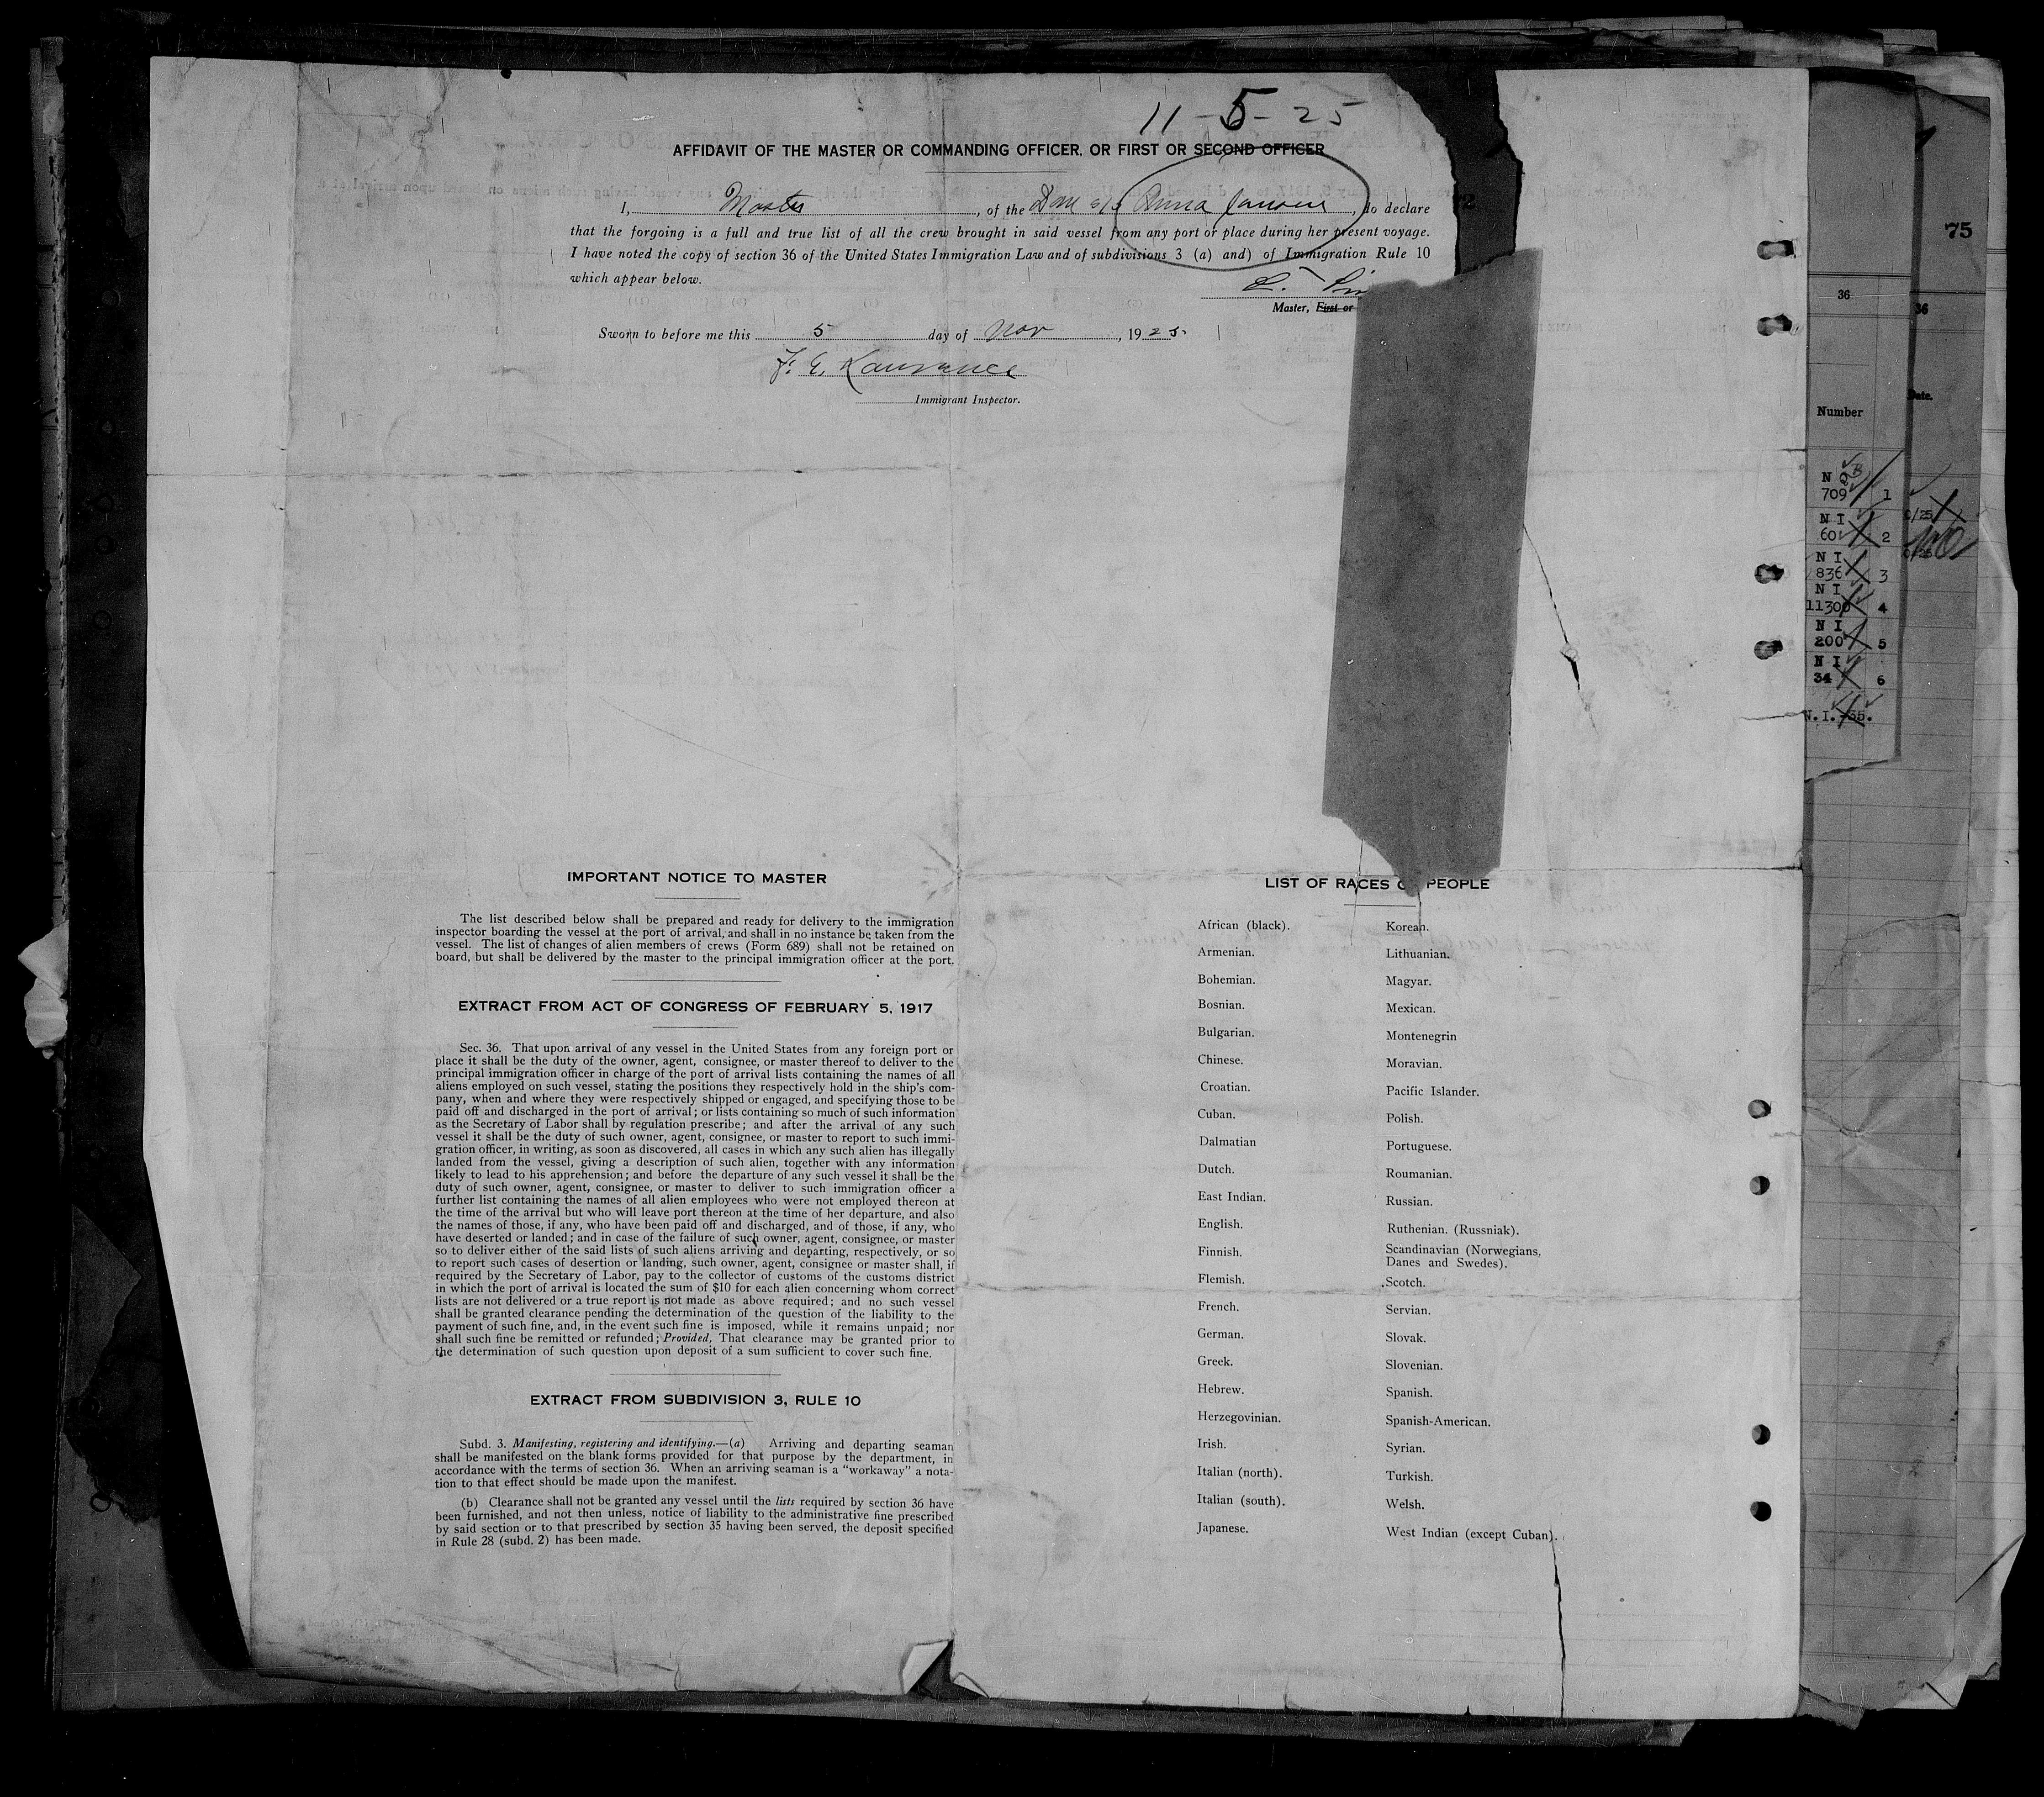 11-5-25
AFFIDAVIT OF THE MASTER OR COMMANDING OFFICER, OR FIRST OR SECOND OFFICER
I, Master, of the Dan s/s Anna, do declare
that the forgoing is a full and true list of all the crew brought in said vessel from any port or place during her present voyage.
I have noted the copy of section 36 of the United States Immigration Law and of subdivisions 3 (a) and) of Immigration Rule 10
which appear below.
Master, First or
Sworn to before me this 5 day of Nov, 1925.
F. E. Lawrance
Immigrant Inspector.
IMPORTANT NOTICE TO MASTER
The list described below shall be prepared and ready for delivery to the immigration
inspector boarding the vessel at the port of arrival, and shall in no instance be taken from the
vessel. The list of changes of alien members of crews (Form 689) shall not be retained on
board, but shall be delivered by the master to the principal immigration officer at the port.
EXTRACT FROM ACT OF CONGRESS OF FEBRUARY 5, 1917
Sec. 36. That upon arrival of any vessel in the United States from any foreign port or
place it shall be the duty of the owner, agent, consignee, or master thereof to deliver to the
principal immigration officer in charge of the port of arrival lists containing the names of all
aliens employed on such vessel, stating the positions they respectively hold in the ship's com-
pany, when and where they were respectively shipped or engaged, and specifying those to be
paid off and discharged in the port of arrival; or lists containing so much of such information
as the Secretary of Labor shall by regulation prescribe; and after the arrival of any such
vessel it shall be the duty of such owner, agent, consignee, or master to report to such immi-
gration officer, in writing, as soon as discovered, all cases in which any such alien has illegally
landed from the vessel, giving a description of such alien, together with any information
likely to lead to his apprehension; and before the departure of any such vessel it shall be the
duty of such owner, agent, consignee, or master to deliver to such immigration officer a
further list containing the names of all alien employees who were not employed thereon at
the time of the arrival but who will leave port thereon at the time of her departure, and also
the names of those, if any, who have been paid off and discharged, and of those, if any, who
have deserted or landed; and in case of the failure of such owner, agent, consignee, or master
so to deliver either of the said lists of such aliens arriving and departing, respectively, or so
to report such cases of desertion or landing, such owner, agent, consignee or master shall, if
required by the Secretary of Labor, pay to the collector of customs of the customs district
in which the port of arrival is located the sum of $10 for each alien concerning whom correct
lists are not delivered or a true report is not made as above required; and no such vessel
shall be granted clearance pending the determination of the question of the liability to the
payment of such fine, and, in the event such fine is imposed, while it remains unpaid; nor
shall such fine be remitted or refunded; Provided, That clearance may be granted prior to
the determination of such question upon deposit of a sum sufficient to cover such fine.
EXTRACT FROM SUBDIVISION 3, RULE 10
Subd. 3. Manifesting, registering and identifying.—(a) Arriving and departing seaman
shall be manifested on the blank forms provided for that purpose by the department, in
accordance with the terms of section 36. When an arriving seaman is a "workaway" a nota-
tion to that effect should be made upon the manifest.
(b) Clearance shall not be granted any vessel until the lists required by section 36 have
been furnished, and not then unless, notice of liability to the administrative fine prescribed
by said section or to that prescribed by section 35 having been served, the deposit specified
in Rule 28 (subd. 2) has been made.
LIST OF RACES O PEOPLE
African (black).
Armenian.
Bohemian.
Bosnian.
Bulgarian.
Chinese.
Croatian.
Cuban.
Dalmatian
Dutch.
East Indian.
English.
Finnish.
Flemish.
French.
German.
Greek.
Hebrew.
Herzegovinian.
Irish.
Italian (north).
Italian (south).
Japanese.
Korean.
Lithuanian.
Magyar.
Mexican.
Montenegrin
Moravian.
Pacific Islander.
Polish.
Portuguese.
Roumanian.
Russian.
Ruthenian. (Russniak).
Scandinavian (Norwegians,
Danes and Swedes).
Scotch.
Servian.
Slovak.
Slovenian.
Spanish.
Spanish-American.
Syrian.
Turkish.
Welsh.
West Indian (except Cuban).
36
Number
709 1
N I
60 2
N I
836 3
N I
11300 4
N I
200 5
N I
34 6
N. I. 35.
75
36
Date.